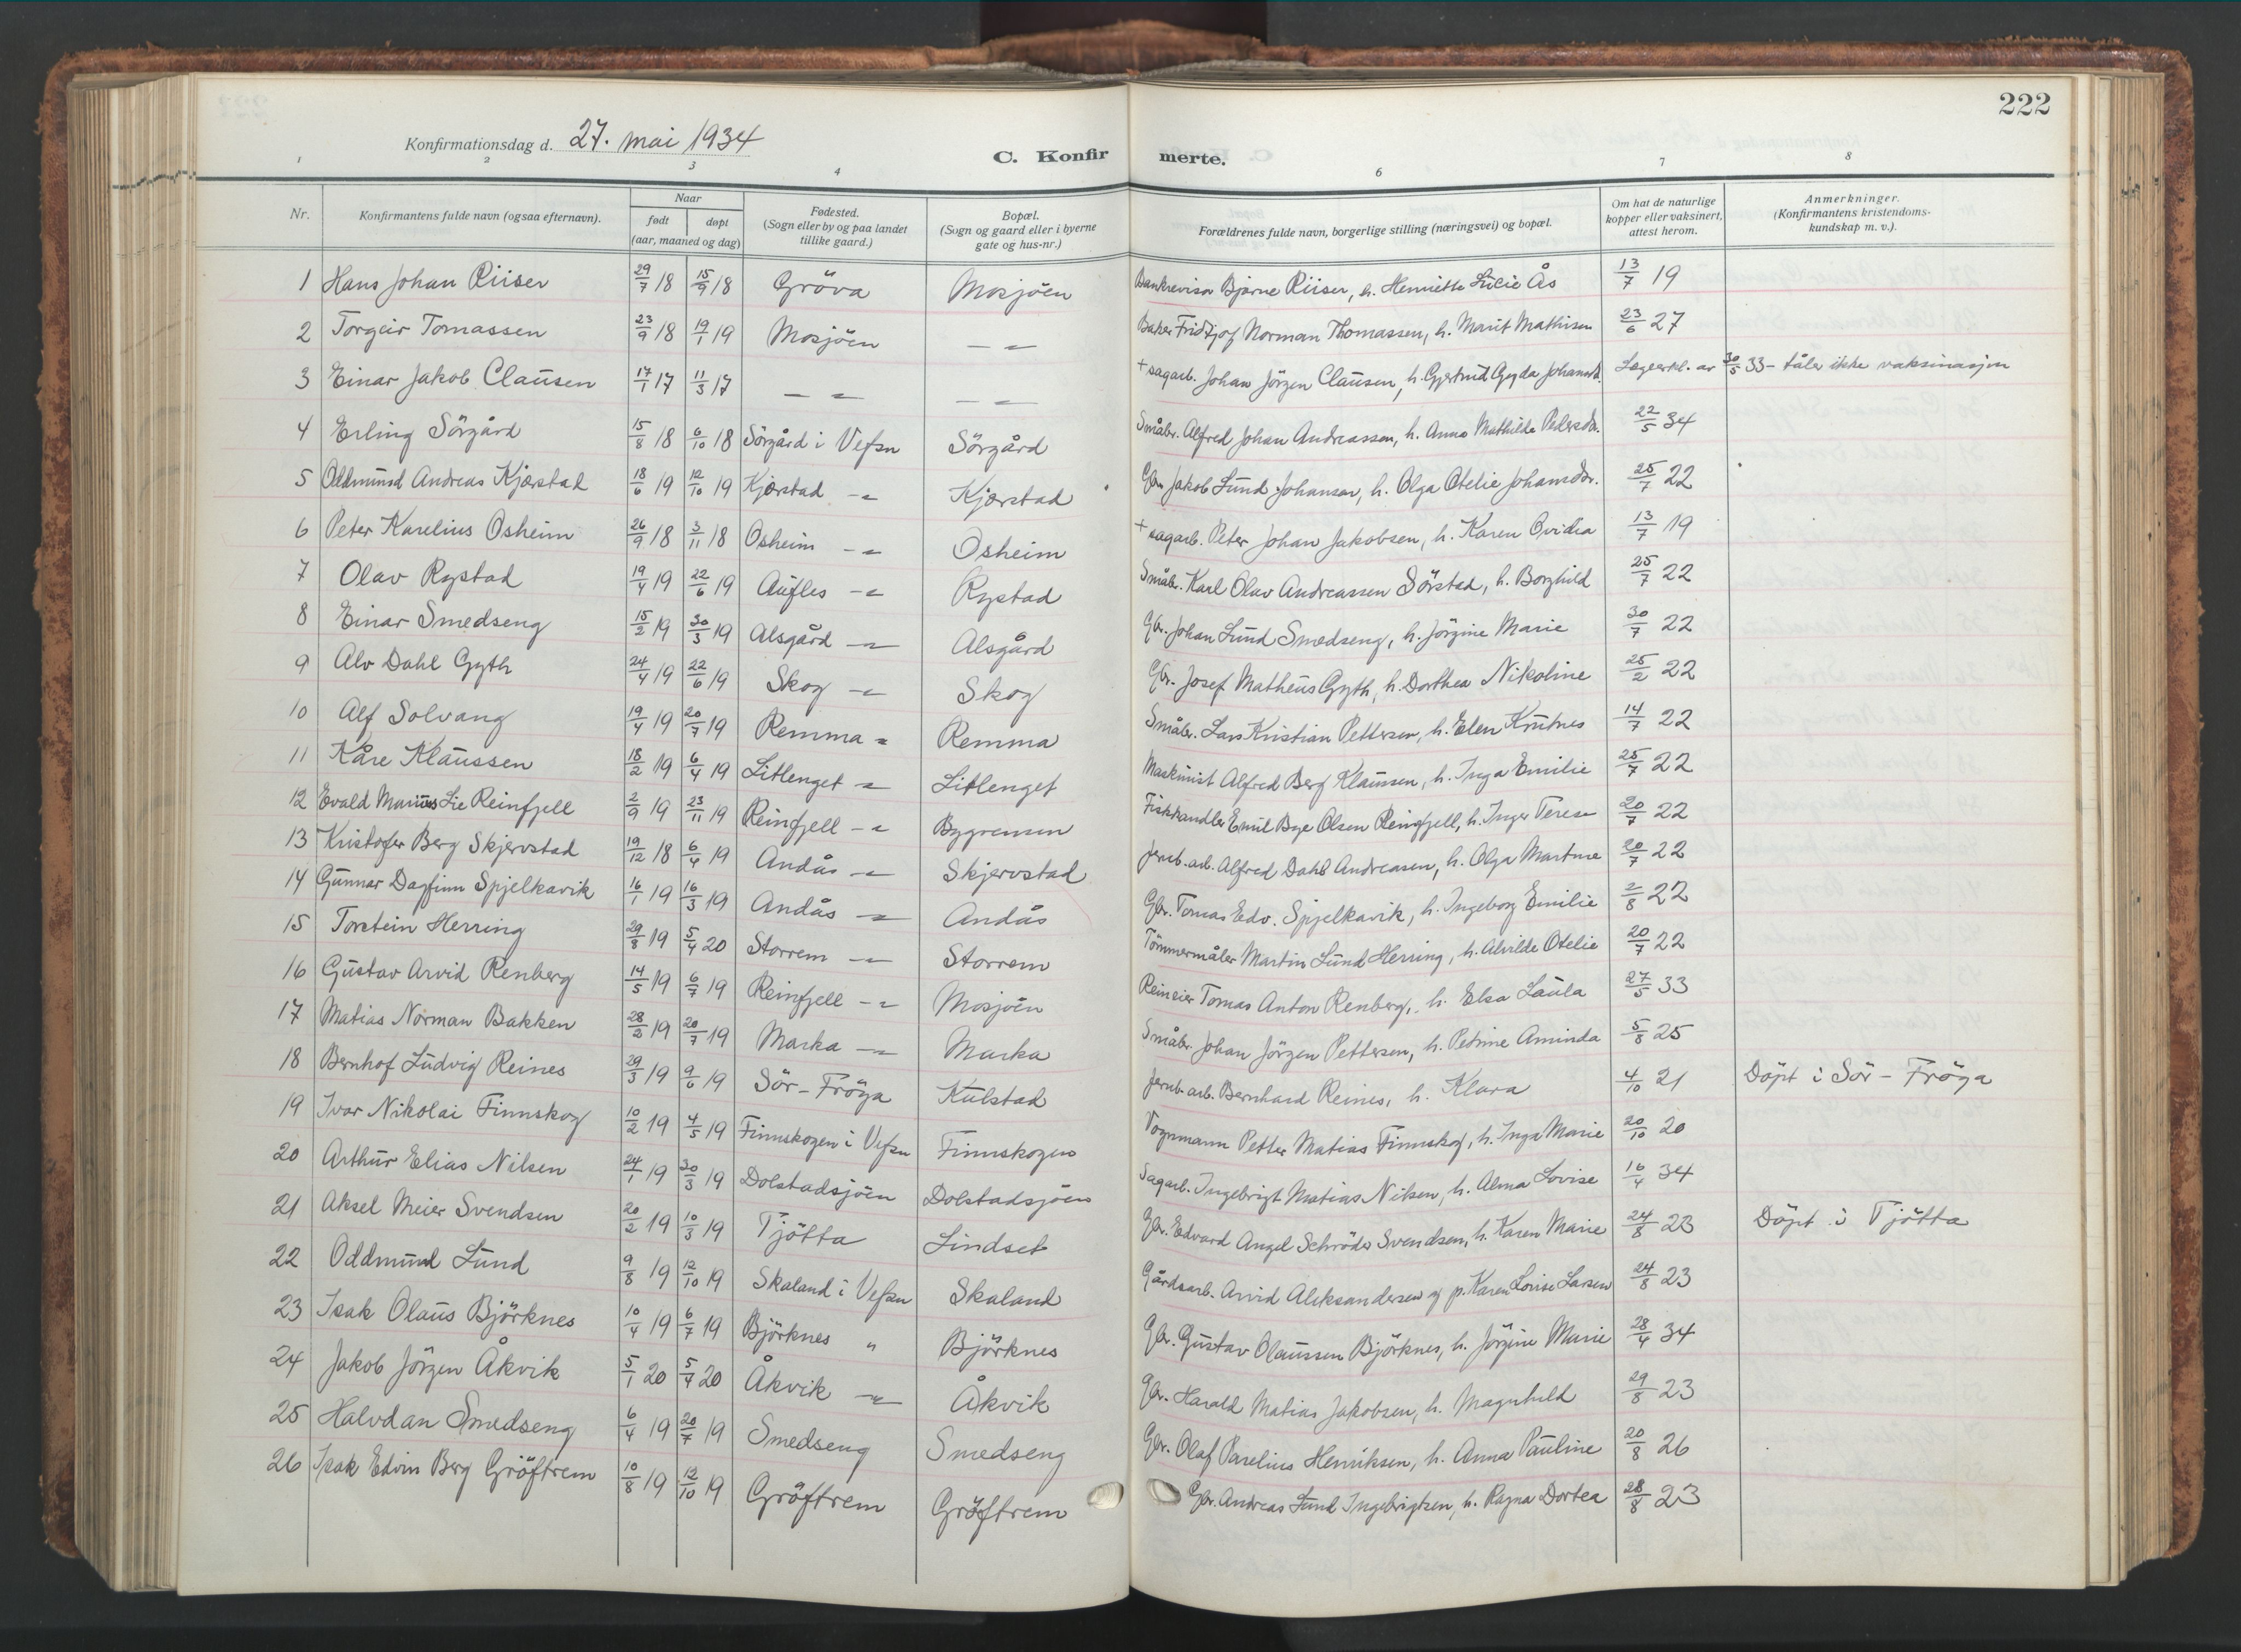 222
Konfirmationsdag d. 27. mai 1934
C. Konfirmerte.
1 2 3 4 6 7 8
Nr. Konfirmantens fulde navn (ogsaa efternavn). Naar født døpt (aar, maaned og dag) Fødested. (Sogn eller by og paa landet tillike gaard.) Bopæl. (Sogn og gaard eller i byerne gate og hus-nr.) Forældrenes fulde navn, borgerlige stilling (næringsvei) og bopæl. Om hat de naturlige kopper eller vaksinert, attest herom. Anmerkninger. (Konfirmantens kristendoms-kundskap m. v.).
1 Hans Johan Riiser 29/7 18 15/9 18 Gröva Mosjöen Bankrevisor Bjarne Riiser, h. Henriette Lucie Ås 13/7 19
2 Torgeir Tomassen 23/9 18 19/1 19 Mosjöen — " — Baker Fridtjof Norman Thomassen, h. Marit Mathisen 23/6 27
3 Einar Jakob Clausen 17/1 17 11/3 17 — " — — " — + sagarb. Johan Jörgen Clausen, h. Gjertrud Gyda Johansd. Lægeerkl. av 30/5 33 - tåler ikke vaksinasjon
4 Erling Sörgård 15/8 18 6/10 18 Sörgård i Vefsn Sörgård Småbr. Alfred Johan Andreassen, h. Anna Mathilde Pedersdr. 22/5 34
5 Oddmund Andreas Kjærstad 18/6 19 12/10 19 Kjærstad — " Kjærstad Gbr. Jakob Lund Johansen, h. Olga Otelie Johansdr. 25/7 22
6 Peter Karelius Osheim 26/9 18 3/11 18 Osheim — " Osheim + sagarb. Peter Johan Jakobsen, h. Karen Ovidia 13/7 19
7 Olav Rystad 19/4 19 22/6 19 Aufles — " Rystad Småbr. Karl Olav Andreassen Sörstad, h. Borghild 25/7 22
8 Einar Smedseng 15/2 19 30/3 19 Alsgård — " Alsgård Gbr. Johan Lund Smedseng, h. Jörgine Marie 30/7 22
9 Alv Dahl Gyth 24/4 19 22/6 19 Skog — " Skog Gbr. Josef Matheus Gyth, h. Dorthea Nikoline 25/2 22
10 Alf Solvang 19/4 19 20/7 19 Remma " Remma Småbr. Lars Kristian Pettersen, h. Elen Krutnes 14/7 22
11 Kåre Klaussen 18/2 19 6/4 19 Litlenget " Litlenget Maskinist Alfred Berg Klaussen, h. Inga Emilie 25/7 22
12 Evald Marius Lie Reinfjell 2/9 19 23/11 19 Reinfjell — " Bygrensen Fiskhandler Emil Bye Olsen Reinfjell, h. Inger Terese 20/7 22
13 Kristofer Berg Skjervstad 19/12 18 6/4 19 Andås — " Skjervstad Jernb.arb. Alfred Dahl Andreasen, h. Olga Martine 20/7 22
14 Gunnar Dagfinn Spjelkavik 16/1 19 16/3 19 Andås — " Andås Gbr. Tomas Edv. Spjelkavik, h. Ingeborg Emilie 2/8 22
15 Torstein Herring 29/8 19 5/4 20 Storrem — " Storrem Tömmermåler Martin Lund Herring, h. Alvilde Otelie 20/7 22
16 Gustav Arvid Renberg 14/5 19 6/7 19 Reinfjell — " Mosjöen Reineier Tomas Anton Renberg, h. Elsa Laula 27/5 33
17 Matias Norman Bakken 28/2 19 20/7 19 Marka — " Marka Småbr. Johan Jörgen Pettersen, h. Petrine Aminda 5/8 25
18 Bernhof Ludvig Reines 29/3 19 9/6 19 Sör-Fröya Kulstad Jernb.arb. Bernhard Reines, h. Klara 4/10 21 Döpt i Sör-Fröya
19 Ivar Nikolai Finnskog 10/2 19 4/5 19 Finnskogen i Vefsn Finnskogen Vognmann Petter Matias Finnskog, h. Inga Marie 20/10 20
20 Arthur Elias Nilsen 24/1 19 30/3 19 Dolstadsjöen Dolstadsjöen Sagarb. Ingebrigt Matias Nilsen, h. Alma Lovise 16/4 34
21 Aksel Meier Svendsen 20/2 19 10/3 19 Tjötta Lindset Gbr. Edvard Angel Schröder Svendsen, h. Karen Marie 24/8 23 Döpt i Tjötta
22 Oddmund Lund 9/8 19 12/10 19 Skaland i Vefsn Skaland Gårdsarb. Arvid Aleksandersen og p. Karen Lovise Larsen 24/8 23
23 Isak Olaus Björknes 10/4 19 6/7 19 Björknes " Björknes Gbr. Gustav Olaussen Björknes, h. Jörgine Marie 28/4 34
24 Jakob Jörgen Åkvik 5/1 20 5/4 20 Åkvik — " Åkvik Gbr. Harald Matias Jakobsen, h. Magnhild 29/8 23
25 Halvdan Smedseng 6/4 19 20/7 19 Smedseng Smedseng Gbr. Olaf Parelius Henriksen, h. Anna Pauline 20/8 26
26 Isak Edvin Berg Gröftrem 10/8 19 12/10 19 Gröftrem Gröftrem Gbr. Andreas Lund Ingebrigtsen, h. Ragna Dortea 28/8 23